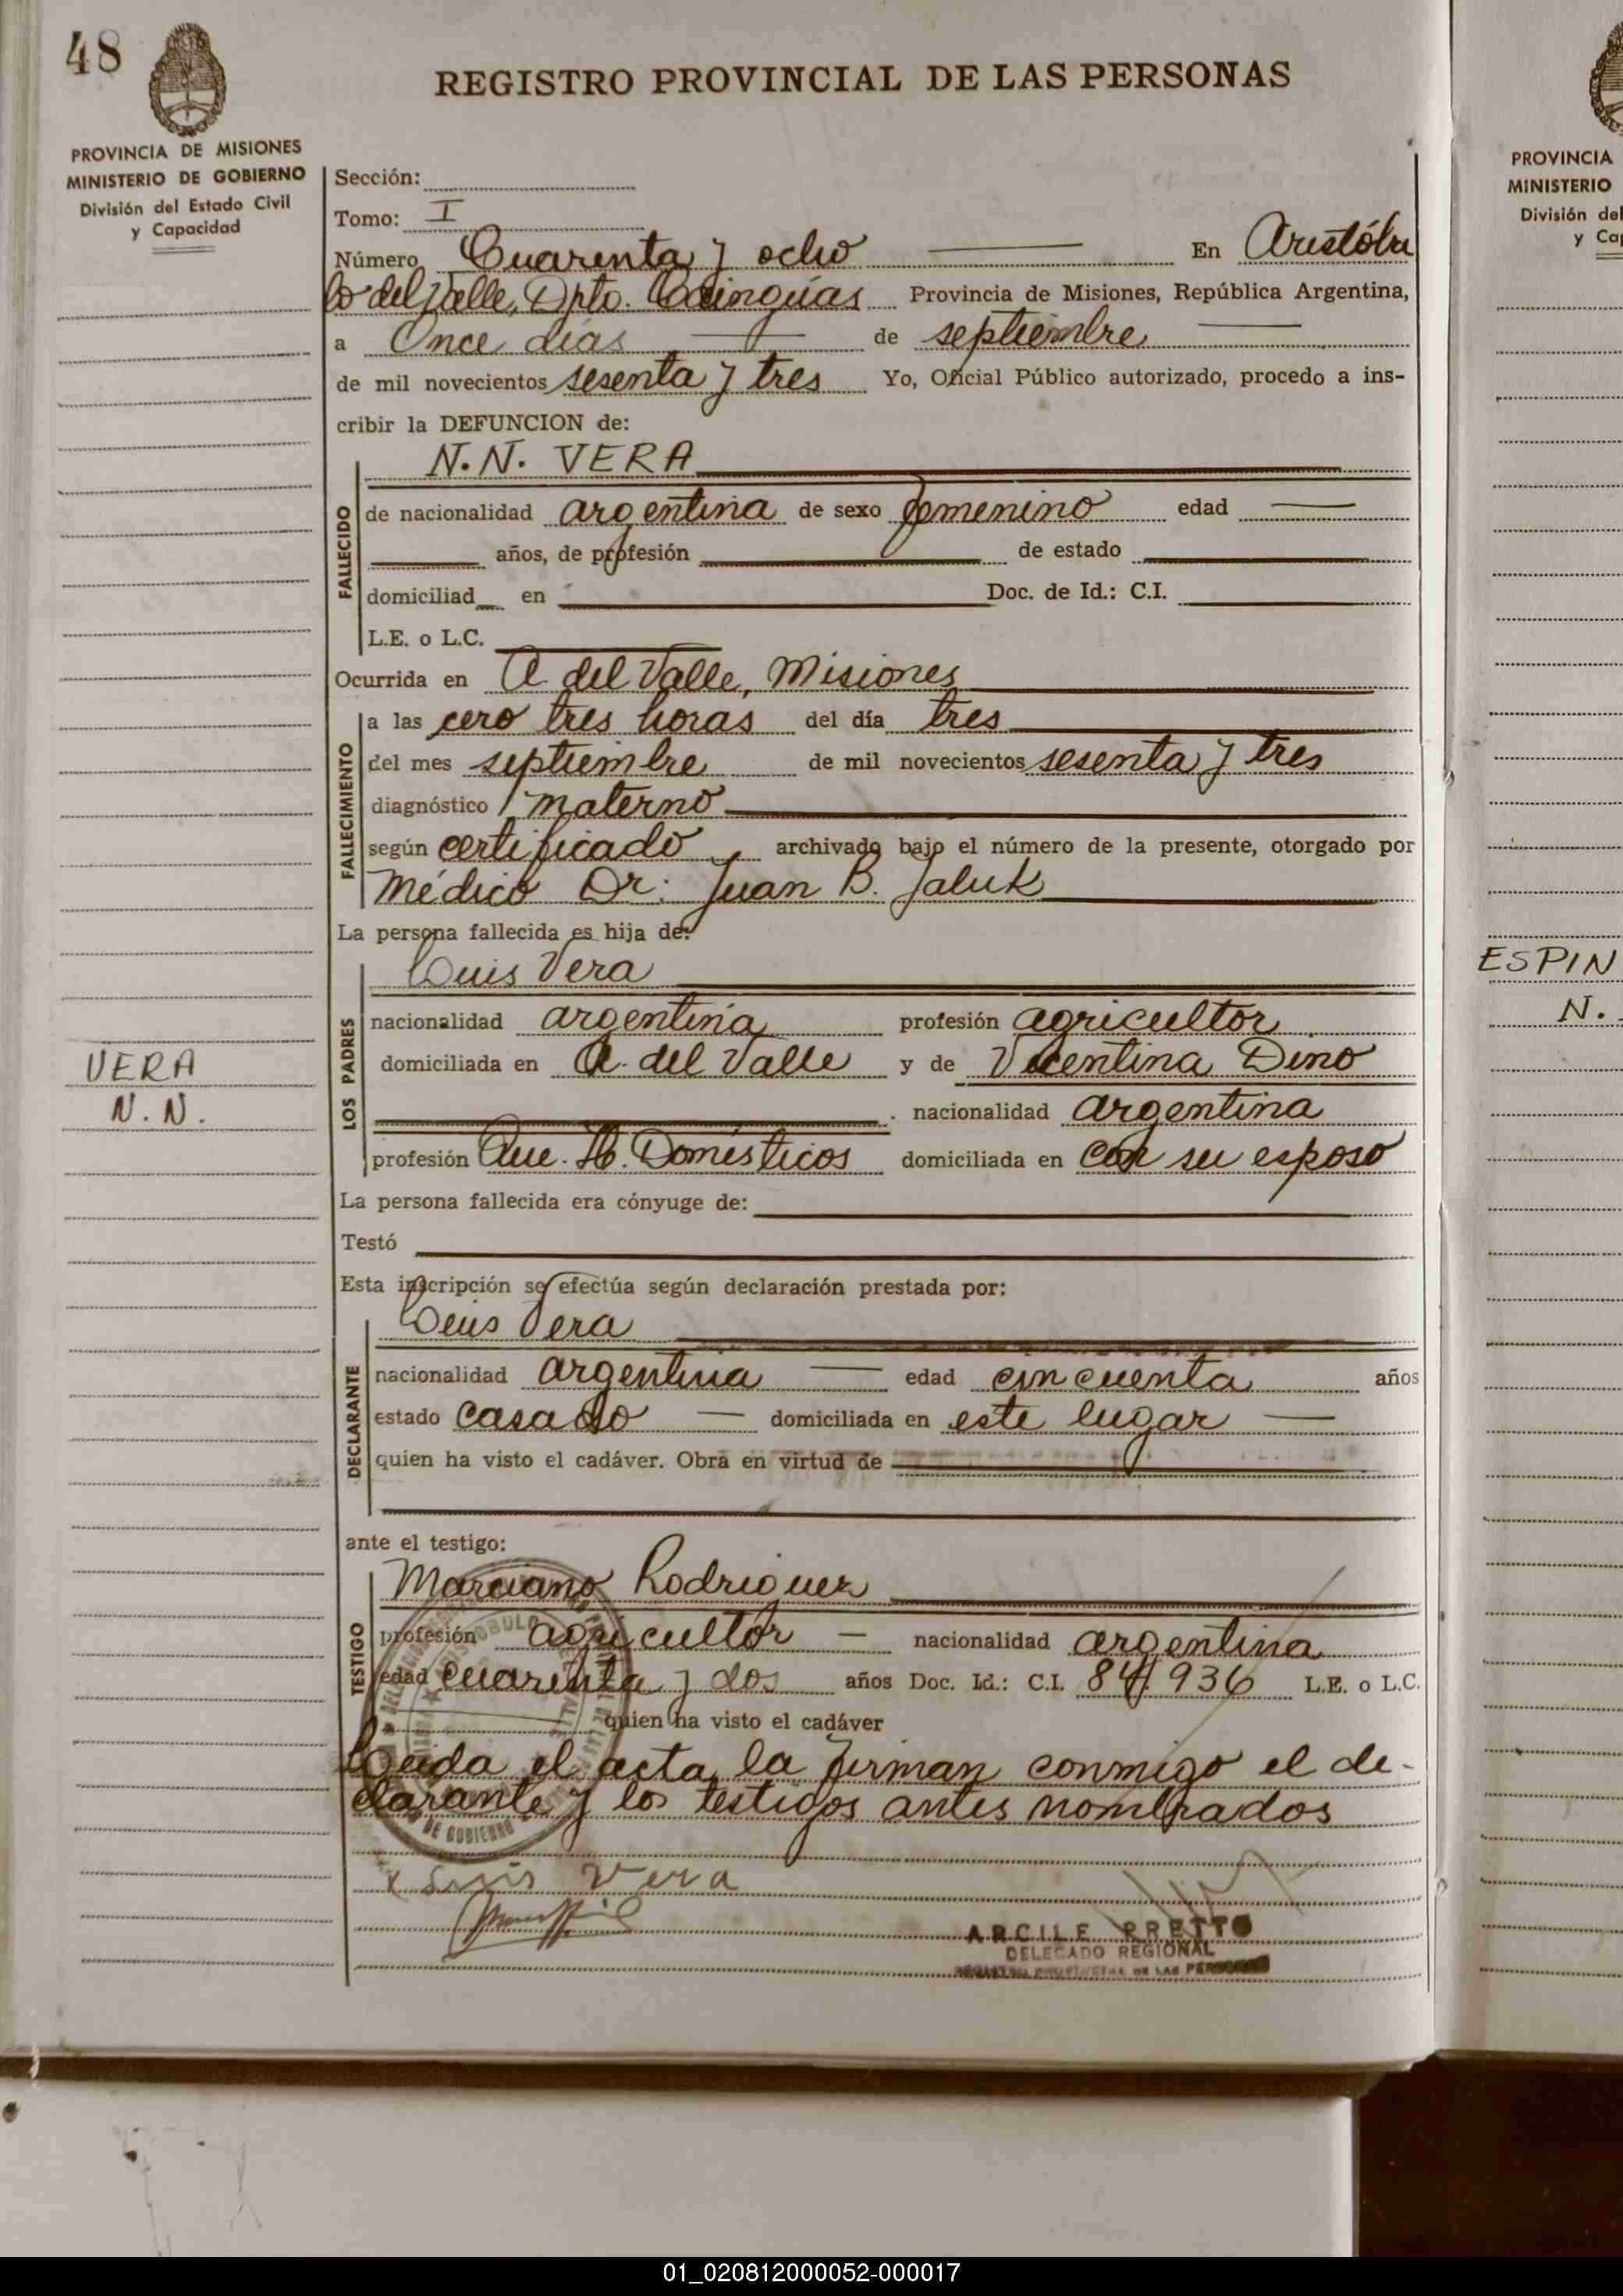 48
REGISTRO PROVINCIAL DE LAS PERSONAS
PROVINCIA DE MISIONES
MINISTERIO DE GOBIERNO
División del Estado Civil
y Capacidad
Sección:
Tomo: I
Número Cuarenta y ocho En Aristóbu
lo del Valle, Dpto. Cainguás Provincia de Misiones, República Argentina,
a Once días de septiembre
de mil novecientos sesenta y tres Yo, Oficial Público autorizado, procedo a ins-
cribir la DEFUNCION de:
N.N. VERA
FALLECIDO
de nacionalidad argentina de sexo femenino edad
años, de profesión de estado
domiciliad en Doc. de Id.: C.I.
L.E. o L.C.
Ocurrida en A. del Valle, Misiones
FALLECIMIENTO
a las cero tres horas del día tres
del mes septiembre de mil novecientos sesenta y tres
diagnóstico materno
según certificado archivado bajo el número de la presente, otorgado por
médico Dr: Juan B. Jaluk
La persona fallecida es hija de:
Luis Vera
LOS PADRES
nacionalidad argentina profesión agricultor
domiciliada en A. del Valle y de Vicentina Dino
nacionalidad argentina
profesión Que. H. Domésticos domiciliada en con su esposo
VERA
N.N.
La persona fallecida era cónyuge de:
Testó
Esta inscripción se efectúa según declaración prestada por:
Luis Vera
DECLARANTE
nacionalidad argentina edad cincuenta años
estado casado domiciliada en este lugar
quien ha visto el cadáver. Obra en virtud de
ante el testigo:
Marciano Rodriguez
TESTIGO
profesión agricultor nacionalidad argentina
edad cuarenta y dos años Doc. Id.: C.I. 84.936 L.E. o L.C.
quien ha visto el cadáver
Leida el acta, la firman conmigo el de-
clarante y los testigos antes nombrados
x Luis Vera
ARCILE PRETTO
DELEGADO REGIONAL
REGISTRO PROVINCIAL DE LAS PERSONAS
PROVINCIA
MINISTERIO
División del
y Cap
ESPIN
N.
01_020812000052-000017